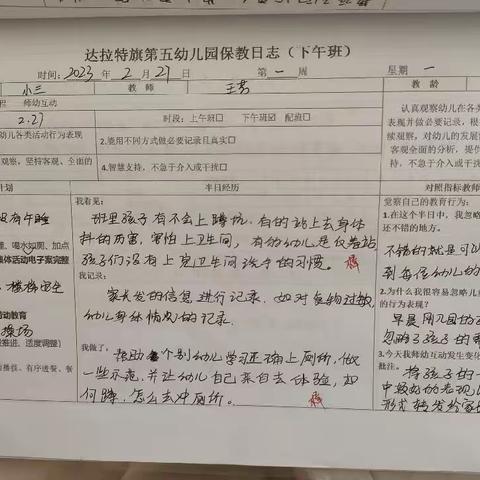 达拉特旗第五幼儿园保教日志（下午班）
时间：2023 年 2 月 27 日 第 一 周 星期 一
小三 教 师 教 龄
师幼互动
2.27 时段：上午班☐ 下午班☑ 配班☐
幼儿各类活动行为表现 2.能用不同方式做必要记录且真实☐
观察，坚持客观、全面的 4.智慧支持，不急于介入或干扰☐
认真观察幼儿在各
表现并做必要记录，根
续观察，对幼儿的发展
客观全面的分析，提供
持，不急于介入或干扰
计划 半日经历 对照指标教师
没有午睡
喝水如厕、加点
集体活动电子案完整
楼梯安全
活动教育
操场
推进、适度调整）
播报、有序进餐、餐
我看见：
班里孩子有不会上蹲坑，有的站上去身体
抖的厉害，害怕上卫生间，有的幼儿是
孩子们没有上完卫生间洗手的习惯。
我记录：
家长发的信息进行记录，如对食物过敏，
幼儿身体情况的记录.
我做了：
帮助个别幼儿学习正确上厕所，做
一些示范，并让幼儿自己亲自去体验，如
何蹲，怎么去冲厕所。
觉察自己的教育行为：
1.在这个半日中，我忽略
还不错的地方。
不错的就是可以
到每位幼儿的
2.为什么我很容易忽略儿
的行为表现？
早晨
忽略了孩子的
3.今天我师幼互动发生变化
批注。
将孩子的一
中较好的表现
形式转发给家